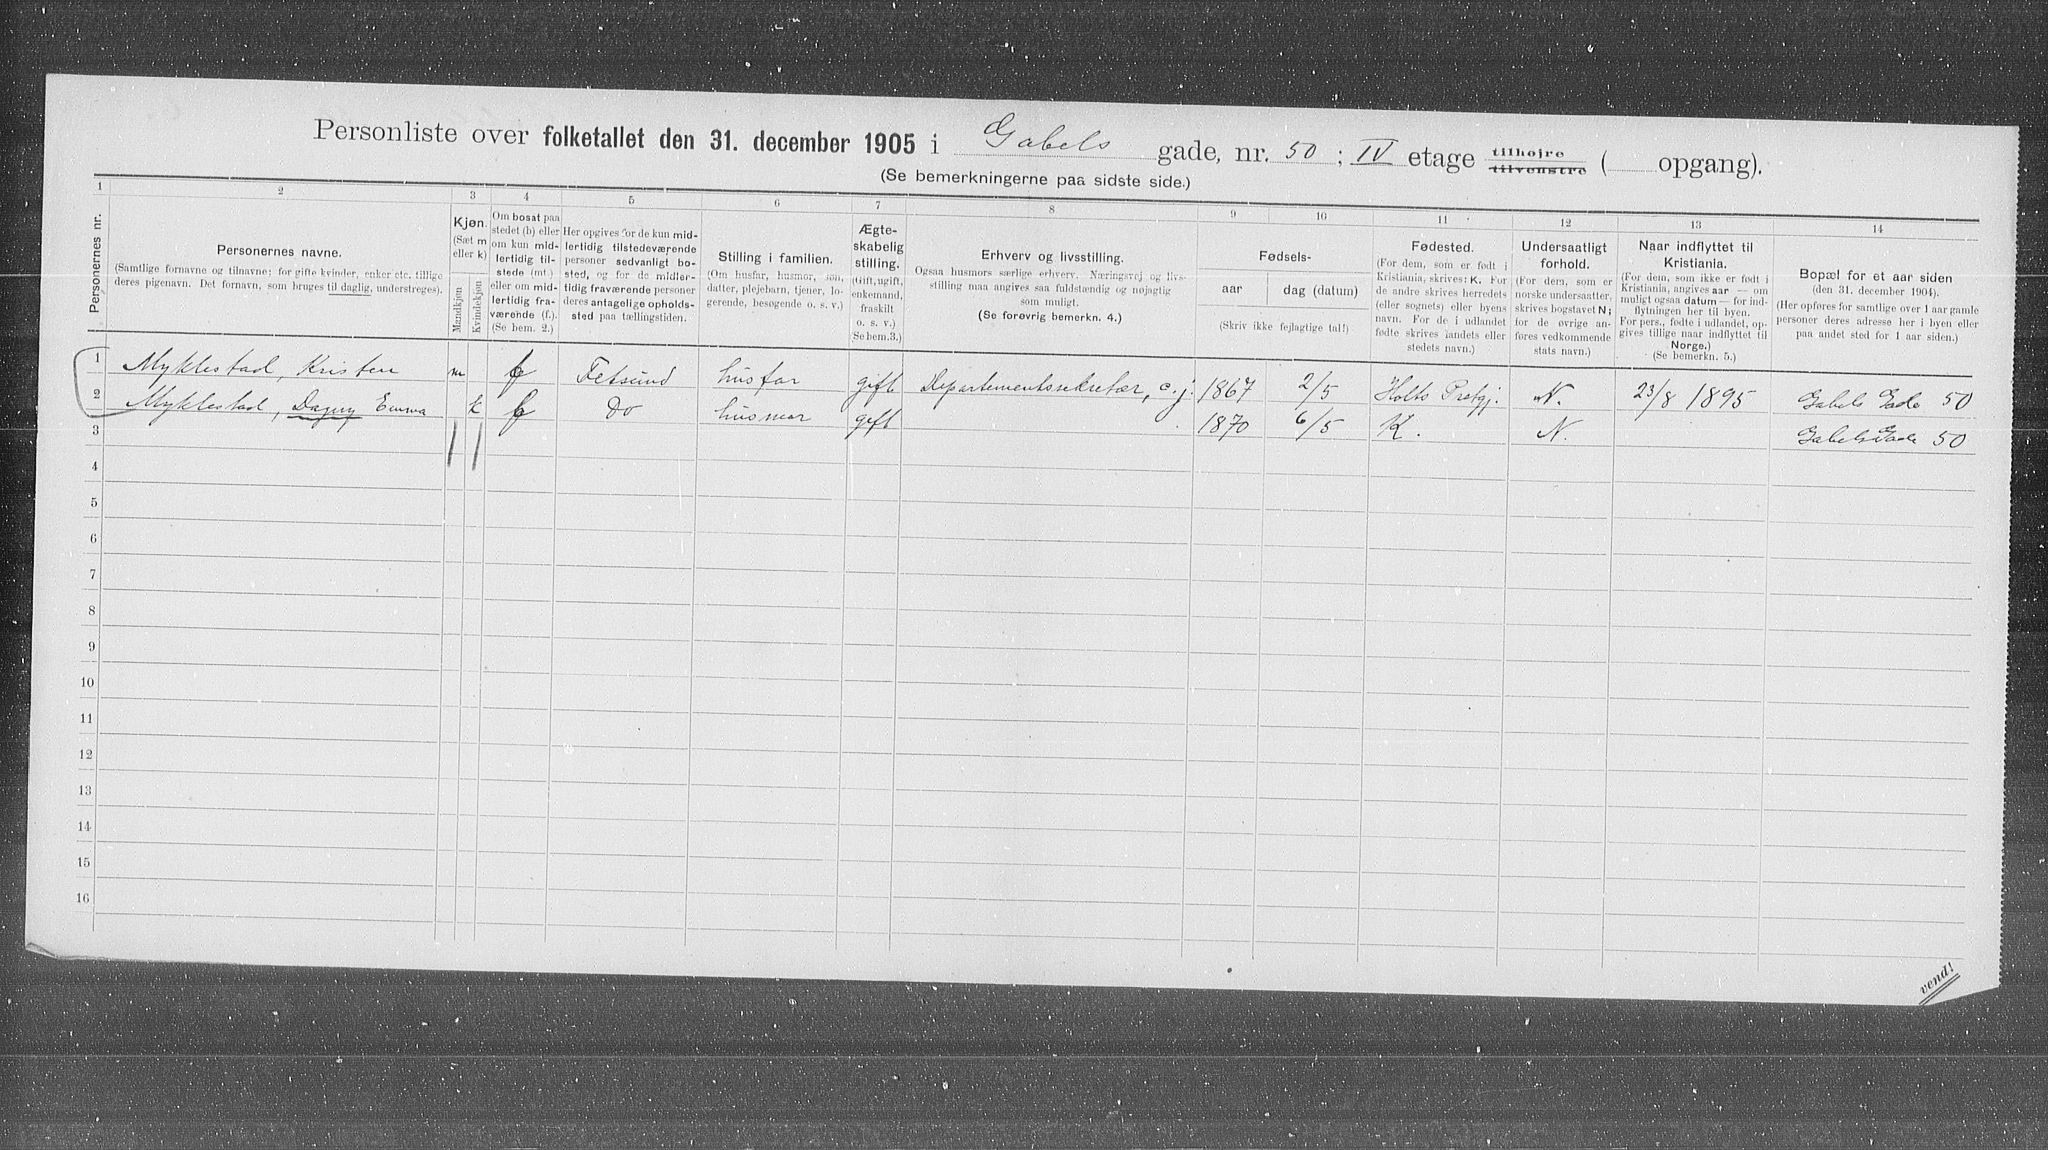 Personliste over folketallet den 31. december 1905 i Gabels gade, nr. 50 ; IV etage tilhøjre tilvenstre ( opgang).
(Se bemerkningerne paa sidste side.)
1 2 3 4 5 6 7 8 9 10 11 12 13 14
Personernes nr.
Personernes navne.
(Samtlige fornavne og tilnavne; for gifte kvinder, enker etc. tillige
deres pigenavn. Det fornavn, som bruges til daglig, understreges).
Kjøn.
(Sæt m
eller k)
Mandkjøn
Kvindekjøn
Om bosat paa
stedet (b) eller
om kun mid-
lertidig til-
stede (mt.)
eller om mid-
lertidig fra-
værende (f.).
(Se bem. 2.)
Her opgives for de kun mid-
lertidig tilstedeværende
personer sedvanlig bo-
sted, og for de midler-
tidig fraværende personer
deres antagelige opholds-
sted paa tællingstiden.
Stilling i familien.
(Om husfar, husmor, søn,
datter, plejebarn, tjener, lo-
gerende, besøgende o. s. v.)
Ægte-
skabelig
stilling.
(Gift, ugift,
enkemand,
fraskilt
o. s. v.)
(Se bem.3.)
Erhverv og livsstilling.
Ogsaa husmors særlige erhverv. Næringsvej og livs-
stilling maa angives saa fuldstændig og nøjagtig
som muligt.
(Se forøvrig bemerkn. 4.)
Fødsels-
aar
dag (datum)
(Skriv ikke fejlagtige tal!)
Fødested.
(For dem, som er født i
Kristiania, skrives: K. For
de andre skrives herredets
(eller sognets) eller byens
navn. For de i udlandet
fødte skrives landets eller
stedets navn.)
Undersaatligt
forhold.
(For dem, som er
norske undersaatter,
skrives bogstavet N;
for de øvrige an-
føres vedkommende
stats navn.)
Naar indflyttet til
Kristiania.
(For dem, som ikke er født i
Kristiania, angives aar — om
muligt ogsaa datum — for ind-
flytningen her til byen.
For pers., fødte i udlandet, op-
gives tillige naar indflyttet til
Norge.)
(Se bemerkn. 5.)
Bopæl for et aar siden
(den 31. december 1904).
(Her opføres for samtlige over 1 aar gamle
personer deres adresse her i byen eller
paa andet sted for 1 aar siden.)
1 Myklestad, Kristen m f Fetsund husfar gift Departementssekretær, c.j. 1867 2/5 Holts Prstgj. N. 23/8 1895 Gabels Gade 50
2 Myklestad, Dagny Emma k f Do husmor gift 1870 6/5 K. N. Gabels Gade 50
3
4
5
6
7
8
9
10
11
12
13
14
15
16
vend!